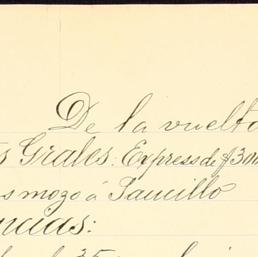 De la vuelta
s Grales. Express de $3 m
s mozo á Saucillo
ncias: